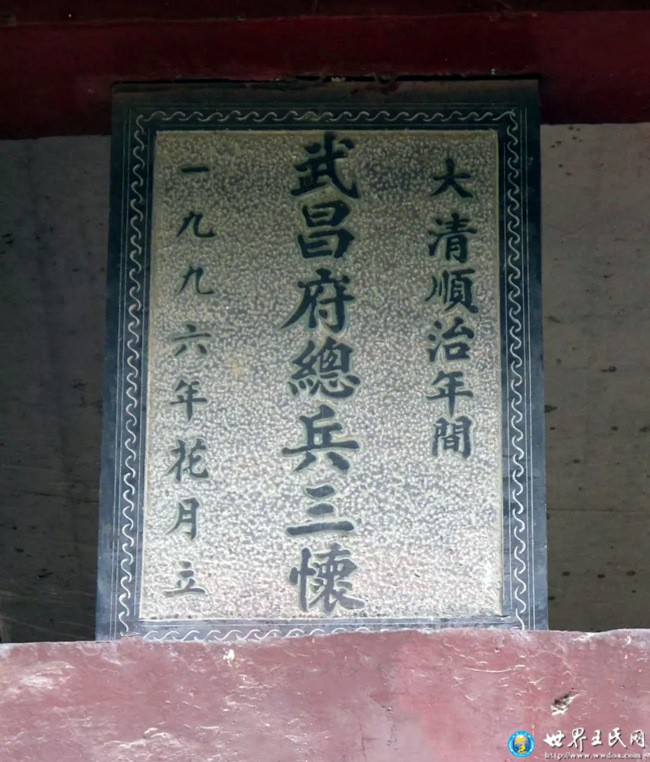 大清順治年間
武昌府總兵三懷
一九九六年花月立
世界王氏网
http://www.wwdoa.com